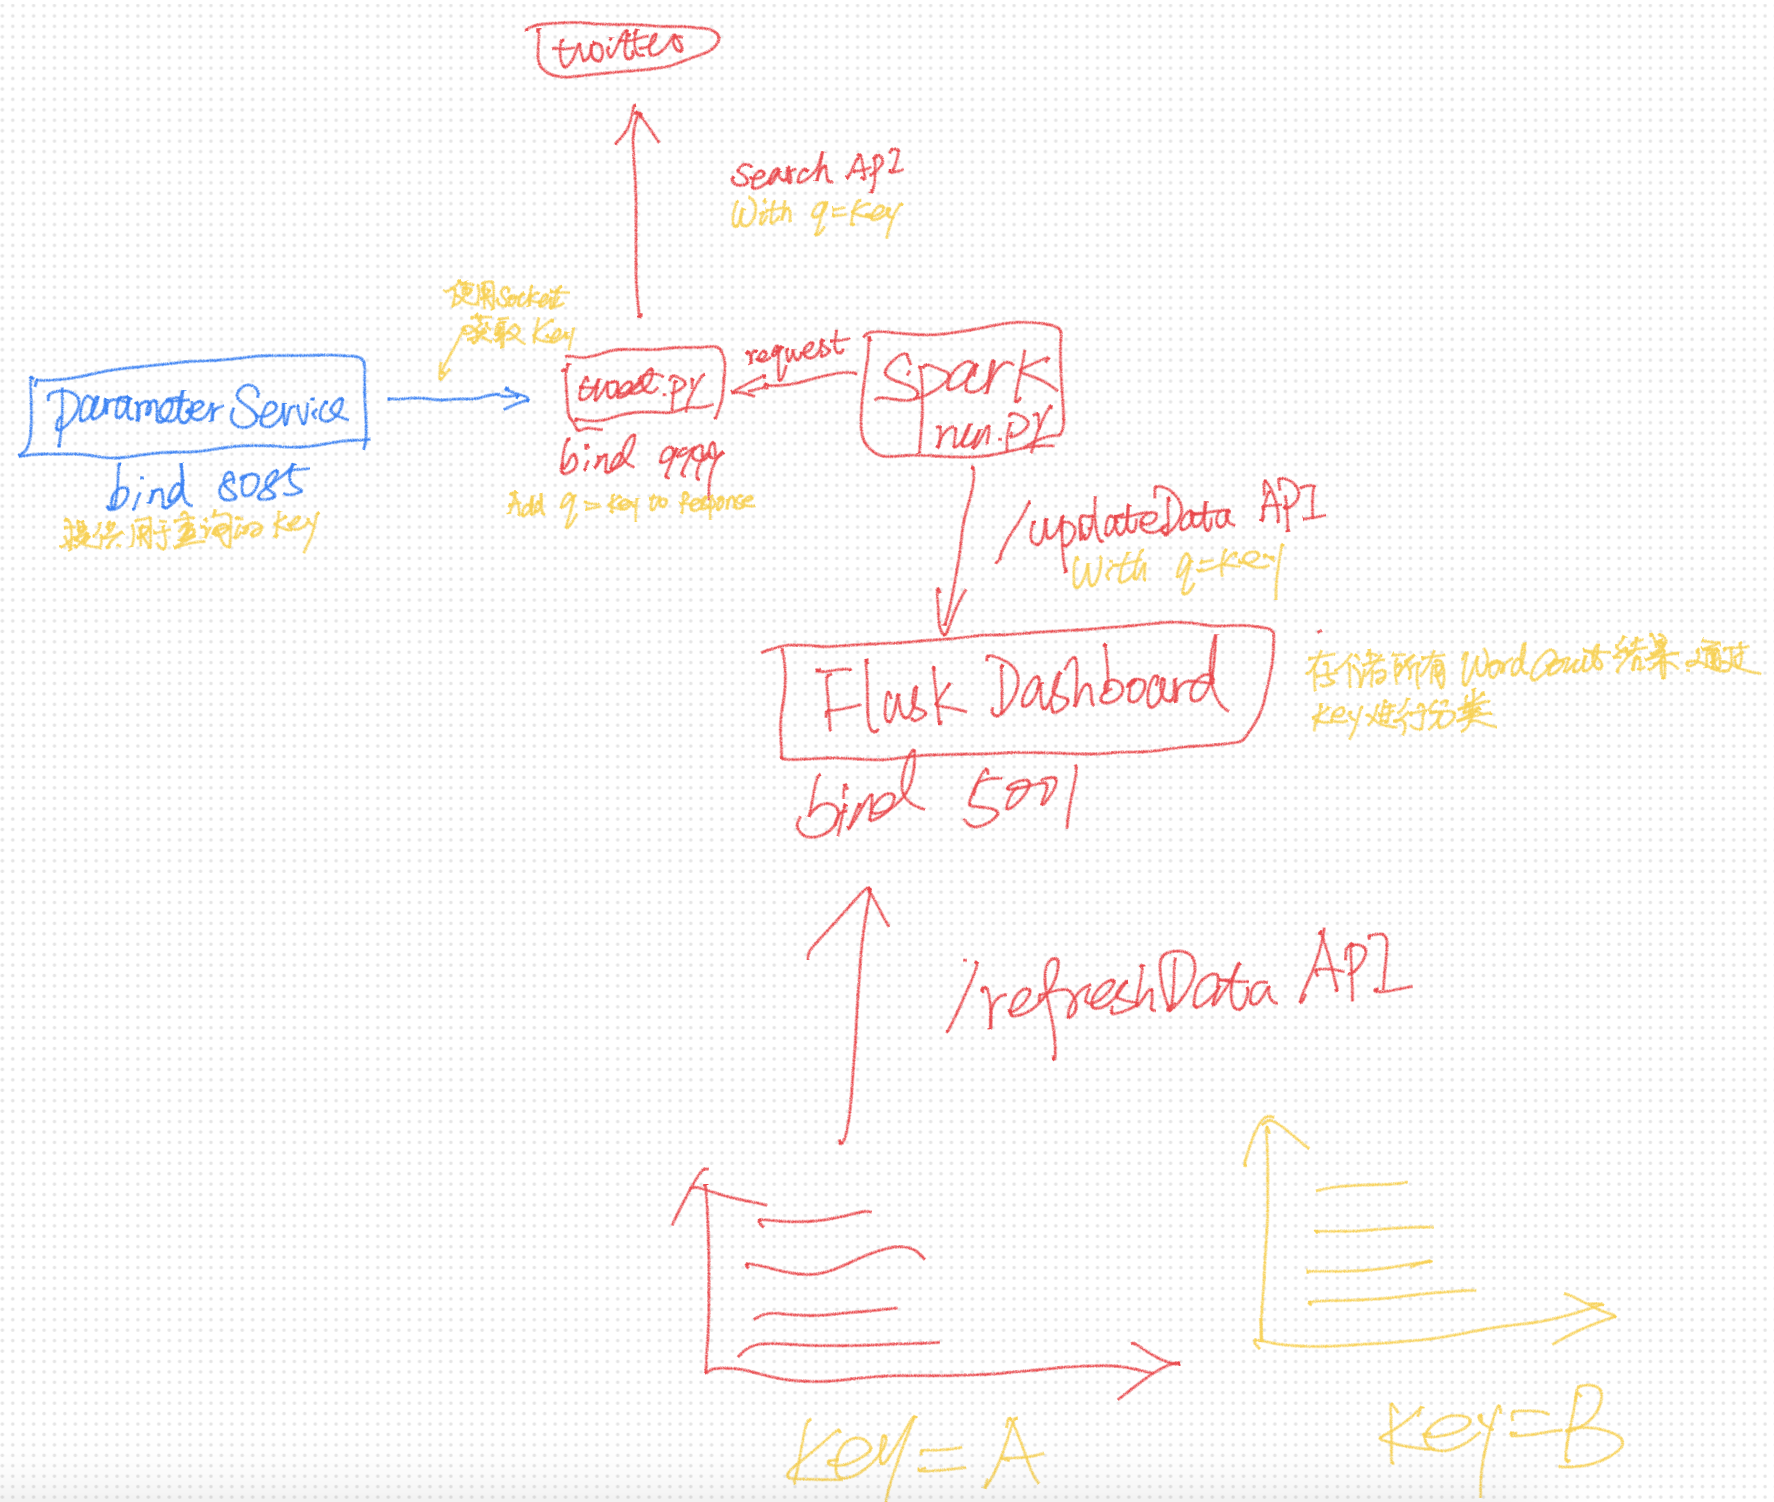 twitter
search API
With q=key
使用Socket
获取 Key
parameter Service
bind 8085
提供用于查询的 key
tweet.py
bind 9999
Add q=key to Response
request
Spark
run.py
/updateData API
With q=key
Flask Dashboard
bind 5001
存储所有 WordCount 结果.通过
key进行分类
/refreshData API
key=A
key=B